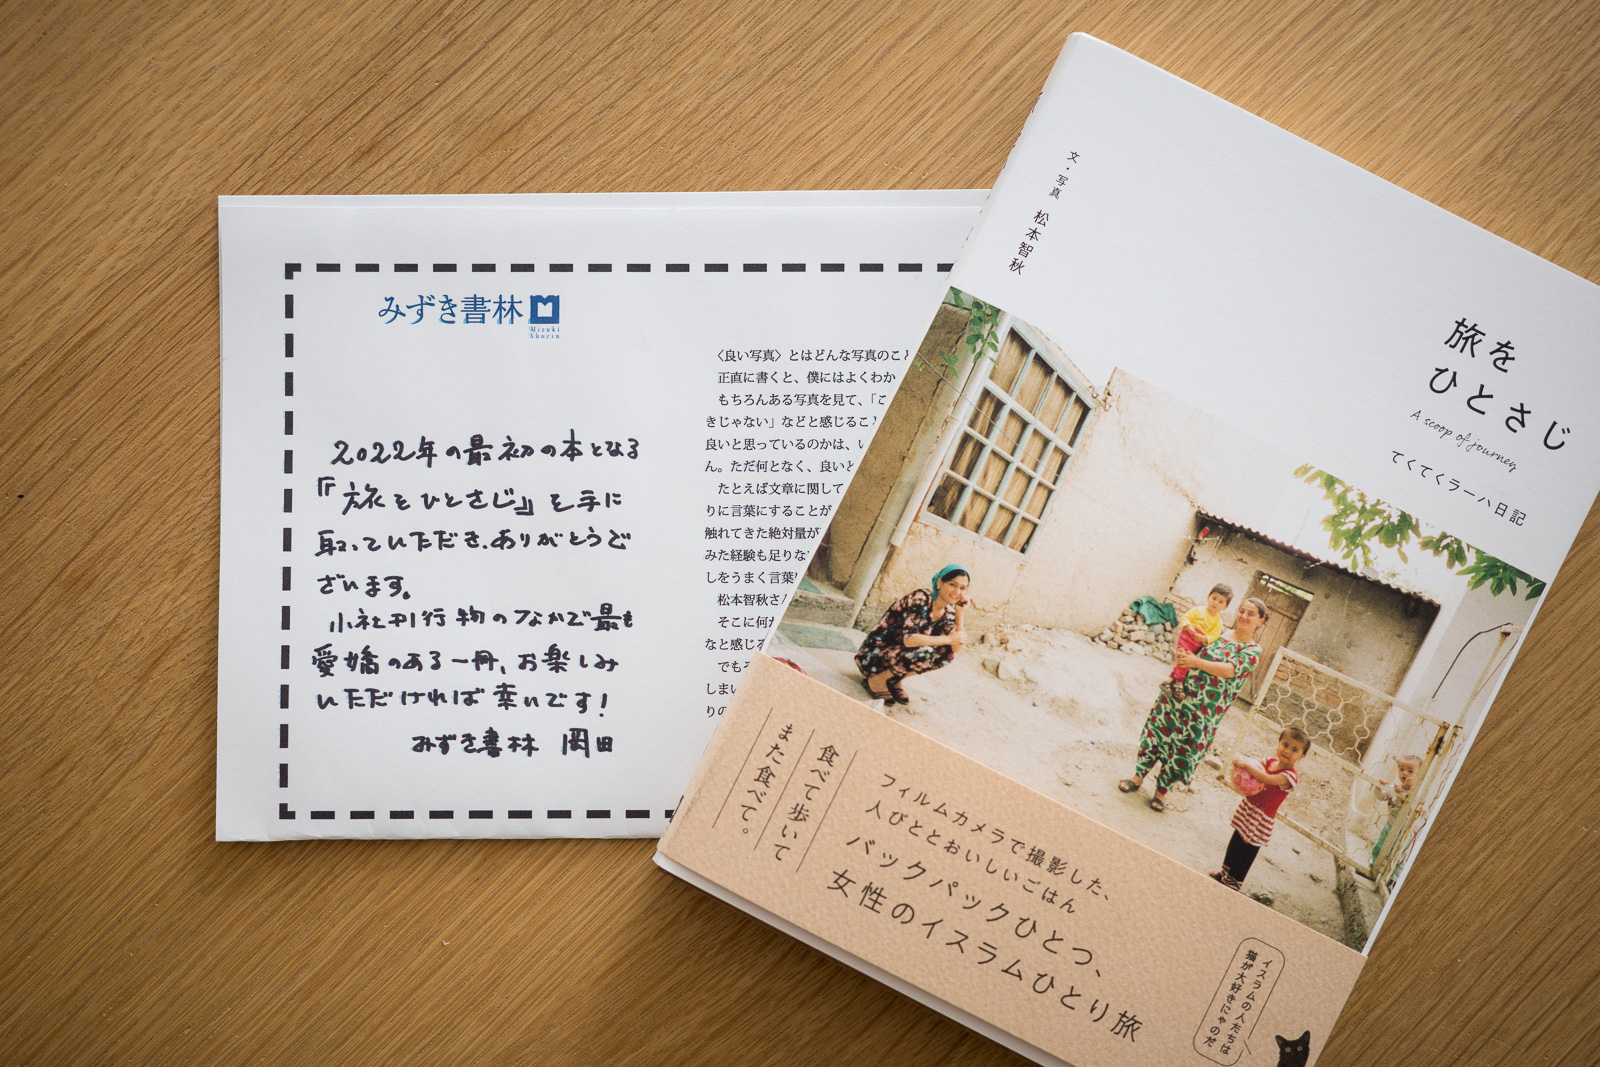 みずき書林
Mizuki
Shorin
2022年の最初の本となる
『旅をひとさじ』を手に
取っていただき、ありがとうご
ざいます。
小社刊行物のなかで最も
愛嬌のある一冊、お楽しみ
いただければ幸いです!
みずき書林 岡田
〈良い写真〉とはどんな写真のこと
正直に書くと、僕にはよくわか
もちろんある写真を見て、「こ
きじゃない」などと感じること
良いと思っているのかは、い
ん。ただ何となく、良いと
たとえば文章に関して
りに言葉にすることが
触れてきた絶対量が
みた経験も足りな
しをうまく言葉に
松本智秋さん
そこに何か
なと感じる
でもそ
しまい
りの
文・写真 松本智秋
旅を
ひとさじ
A scoop of journey
てくてくラーハ日記
食べて歩いて
また食べて。
フィルムカメラで撮影した、
人びととおいしいごはん
バックパックひとつ、
女性のイスラムひとり旅
イスラムの人たちは
猫が大好きにゃのだ